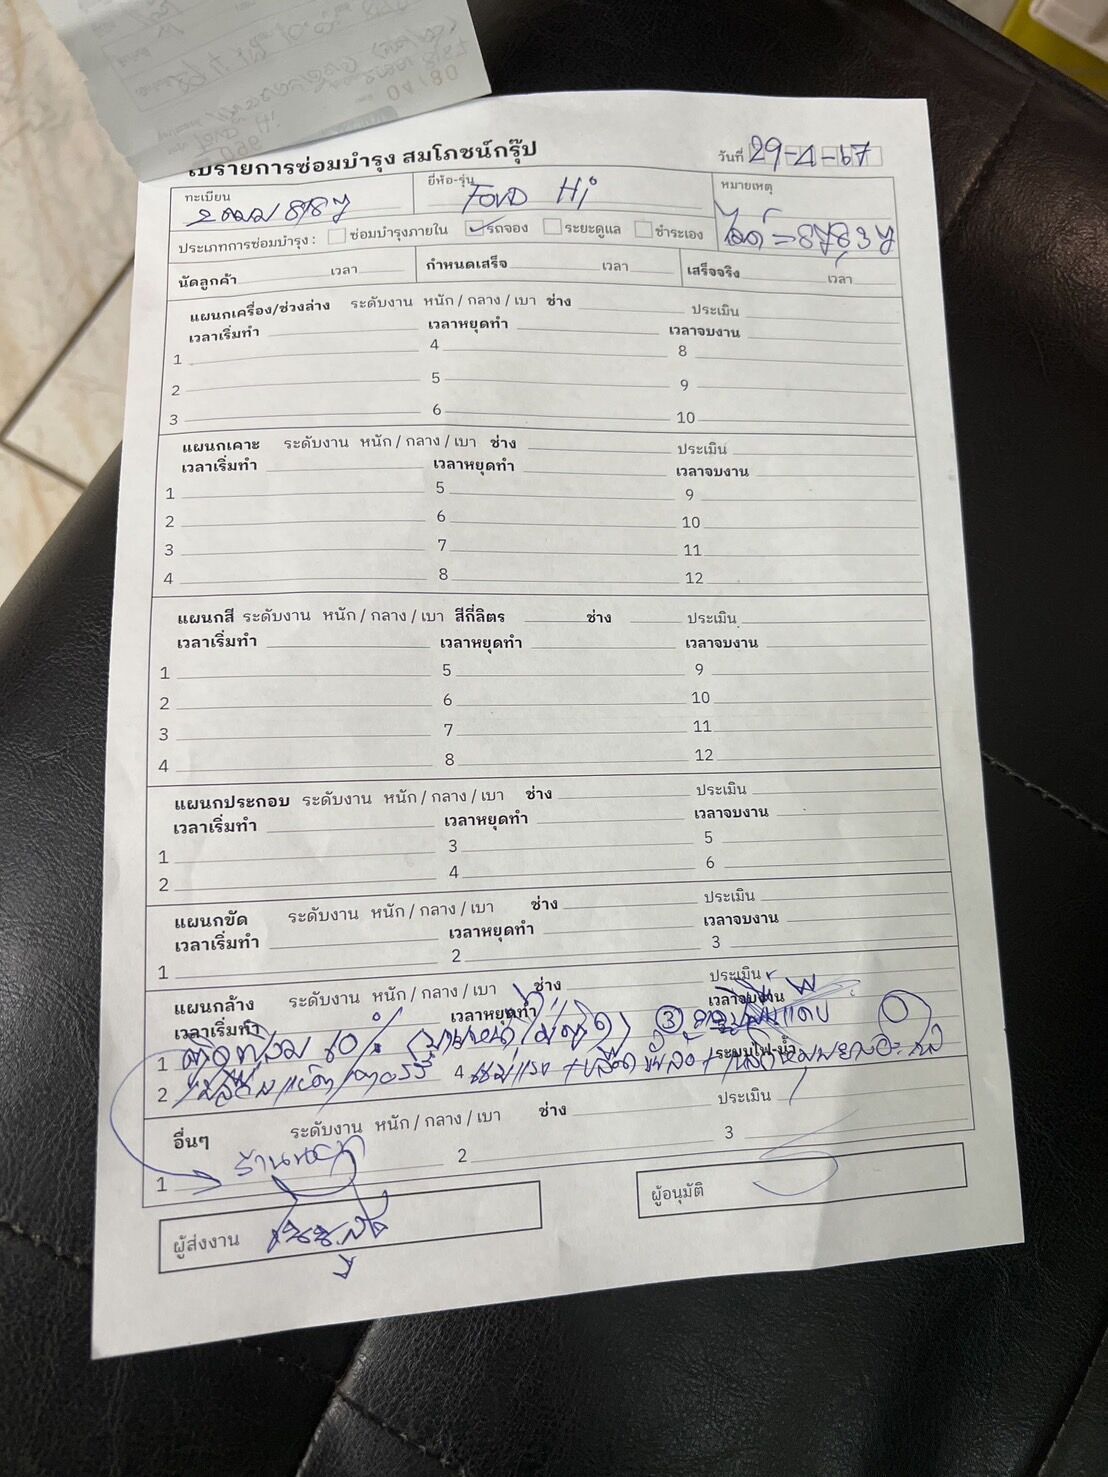 ใบรายการซ่อมบำรุง สมโภชน์กรุ๊ป
วันที่ 29-4-67
ทะเบียน
ยี่ห้อ-รุ่น FORD Hi
หมายเหตุ
ประเภทการซ่อมบำรุง : ซ่อมบำรุงภายใน รถจอง ระยะดูแล ชำระเอง
นัดลูกค้า เวลา กำหนดเสร็จ เวลา เสร็จจริง เวลา
แผนกเครื่อง/ช่วงล่าง ระดับงาน หนัก / กลาง / เบา ช่าง ประเมิน
เวลาเริ่มทำ เวลาหยุดทำ เวลาจบงาน
1 4 8
2 5 9
3 6 10
แผนกเคาะ ระดับงาน หนัก / กลาง / เบา ช่าง ประเมิน
เวลาเริ่มทำ เวลาหยุดทำ เวลาจบงาน
1 5 9
2 6 10
3 7 11
4 8 12
แผนกสี ระดับงาน หนัก / กลาง / เบา สีกี่ลิตร ช่าง ประเมิน
เวลาเริ่มทำ เวลาหยุดทำ เวลาจบงาน
1 5 9
2 6 10
3 7 11
4 8 12
แผนกประกอบ ระดับงาน หนัก / กลาง / เบา ช่าง ประเมิน
เวลาเริ่มทำ เวลาหยุดทำ เวลาจบงาน
1 3 5
2 4 6
แผนกขัด ระดับงาน หนัก / กลาง / เบา ช่าง ประเมิน
เวลาเริ่มทำ เวลาหยุดทำ เวลาจบงาน
1 2 3
แผนกล้าง ระดับงาน หนัก / กลาง / เบา ช่าง ประเมิน
เวลาเริ่มทำ เวลาหยุดทำ เวลาจบงาน
1 ③ ระบบไฟ-น้ำ
2 4
อื่นๆ ระดับงาน หนัก / กลาง / เบา ช่าง ประเมิน
1 2 3
ผู้ส่งงาน ผู้อนุมัติ